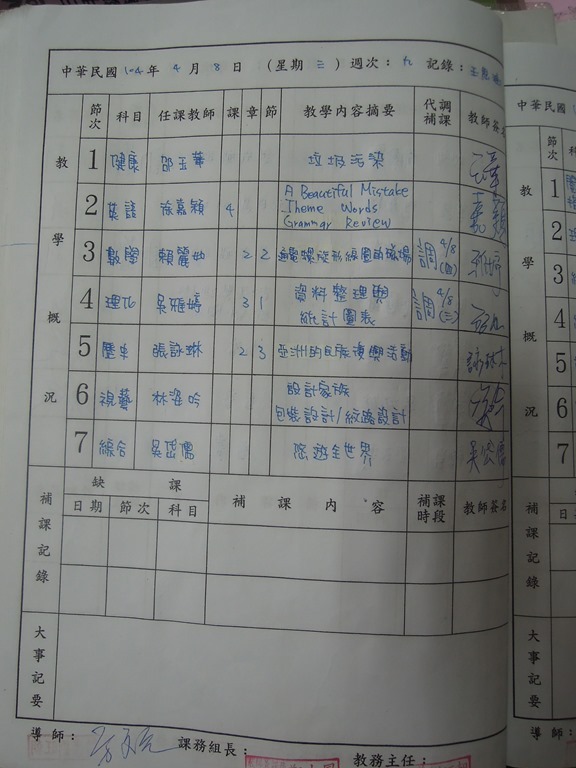 中華民國104年 4月 8日 (星期三) 週次:九 記錄:
教學概況
節次 科目 任課教師 課 章 節 教學內容摘要 代調補課 教師簽名
1 健康 邵玉華 垃圾污染
2 英語 徐嘉穎 4 A Beautiful Mistake
Theme Words
Grammar Review
3 數學 賴麗如 2 2 通電螺旋形線圈的磁場 調 4/8 (四)
4 理化 吳雅婷 3 1 資料整理與
統計圖表 調 4/8 (三)
5 歷史 張詠琳 2 3 亞洲的民族復興活動
6 視藝 林姿吟 設計家族
包裝設計/網路設計
7 綜合 吳岱儒 悠遊全世界 吳岱儒
補課記錄
缺課
日期 節次 科目 補課內容 補課時段 教師簽名
大事記要
導師: 課務組長: 教務主任:
中華民國
教學概況
節次
1
2
3
4
5
6
7
補課記錄
日期
大事記要
導師: